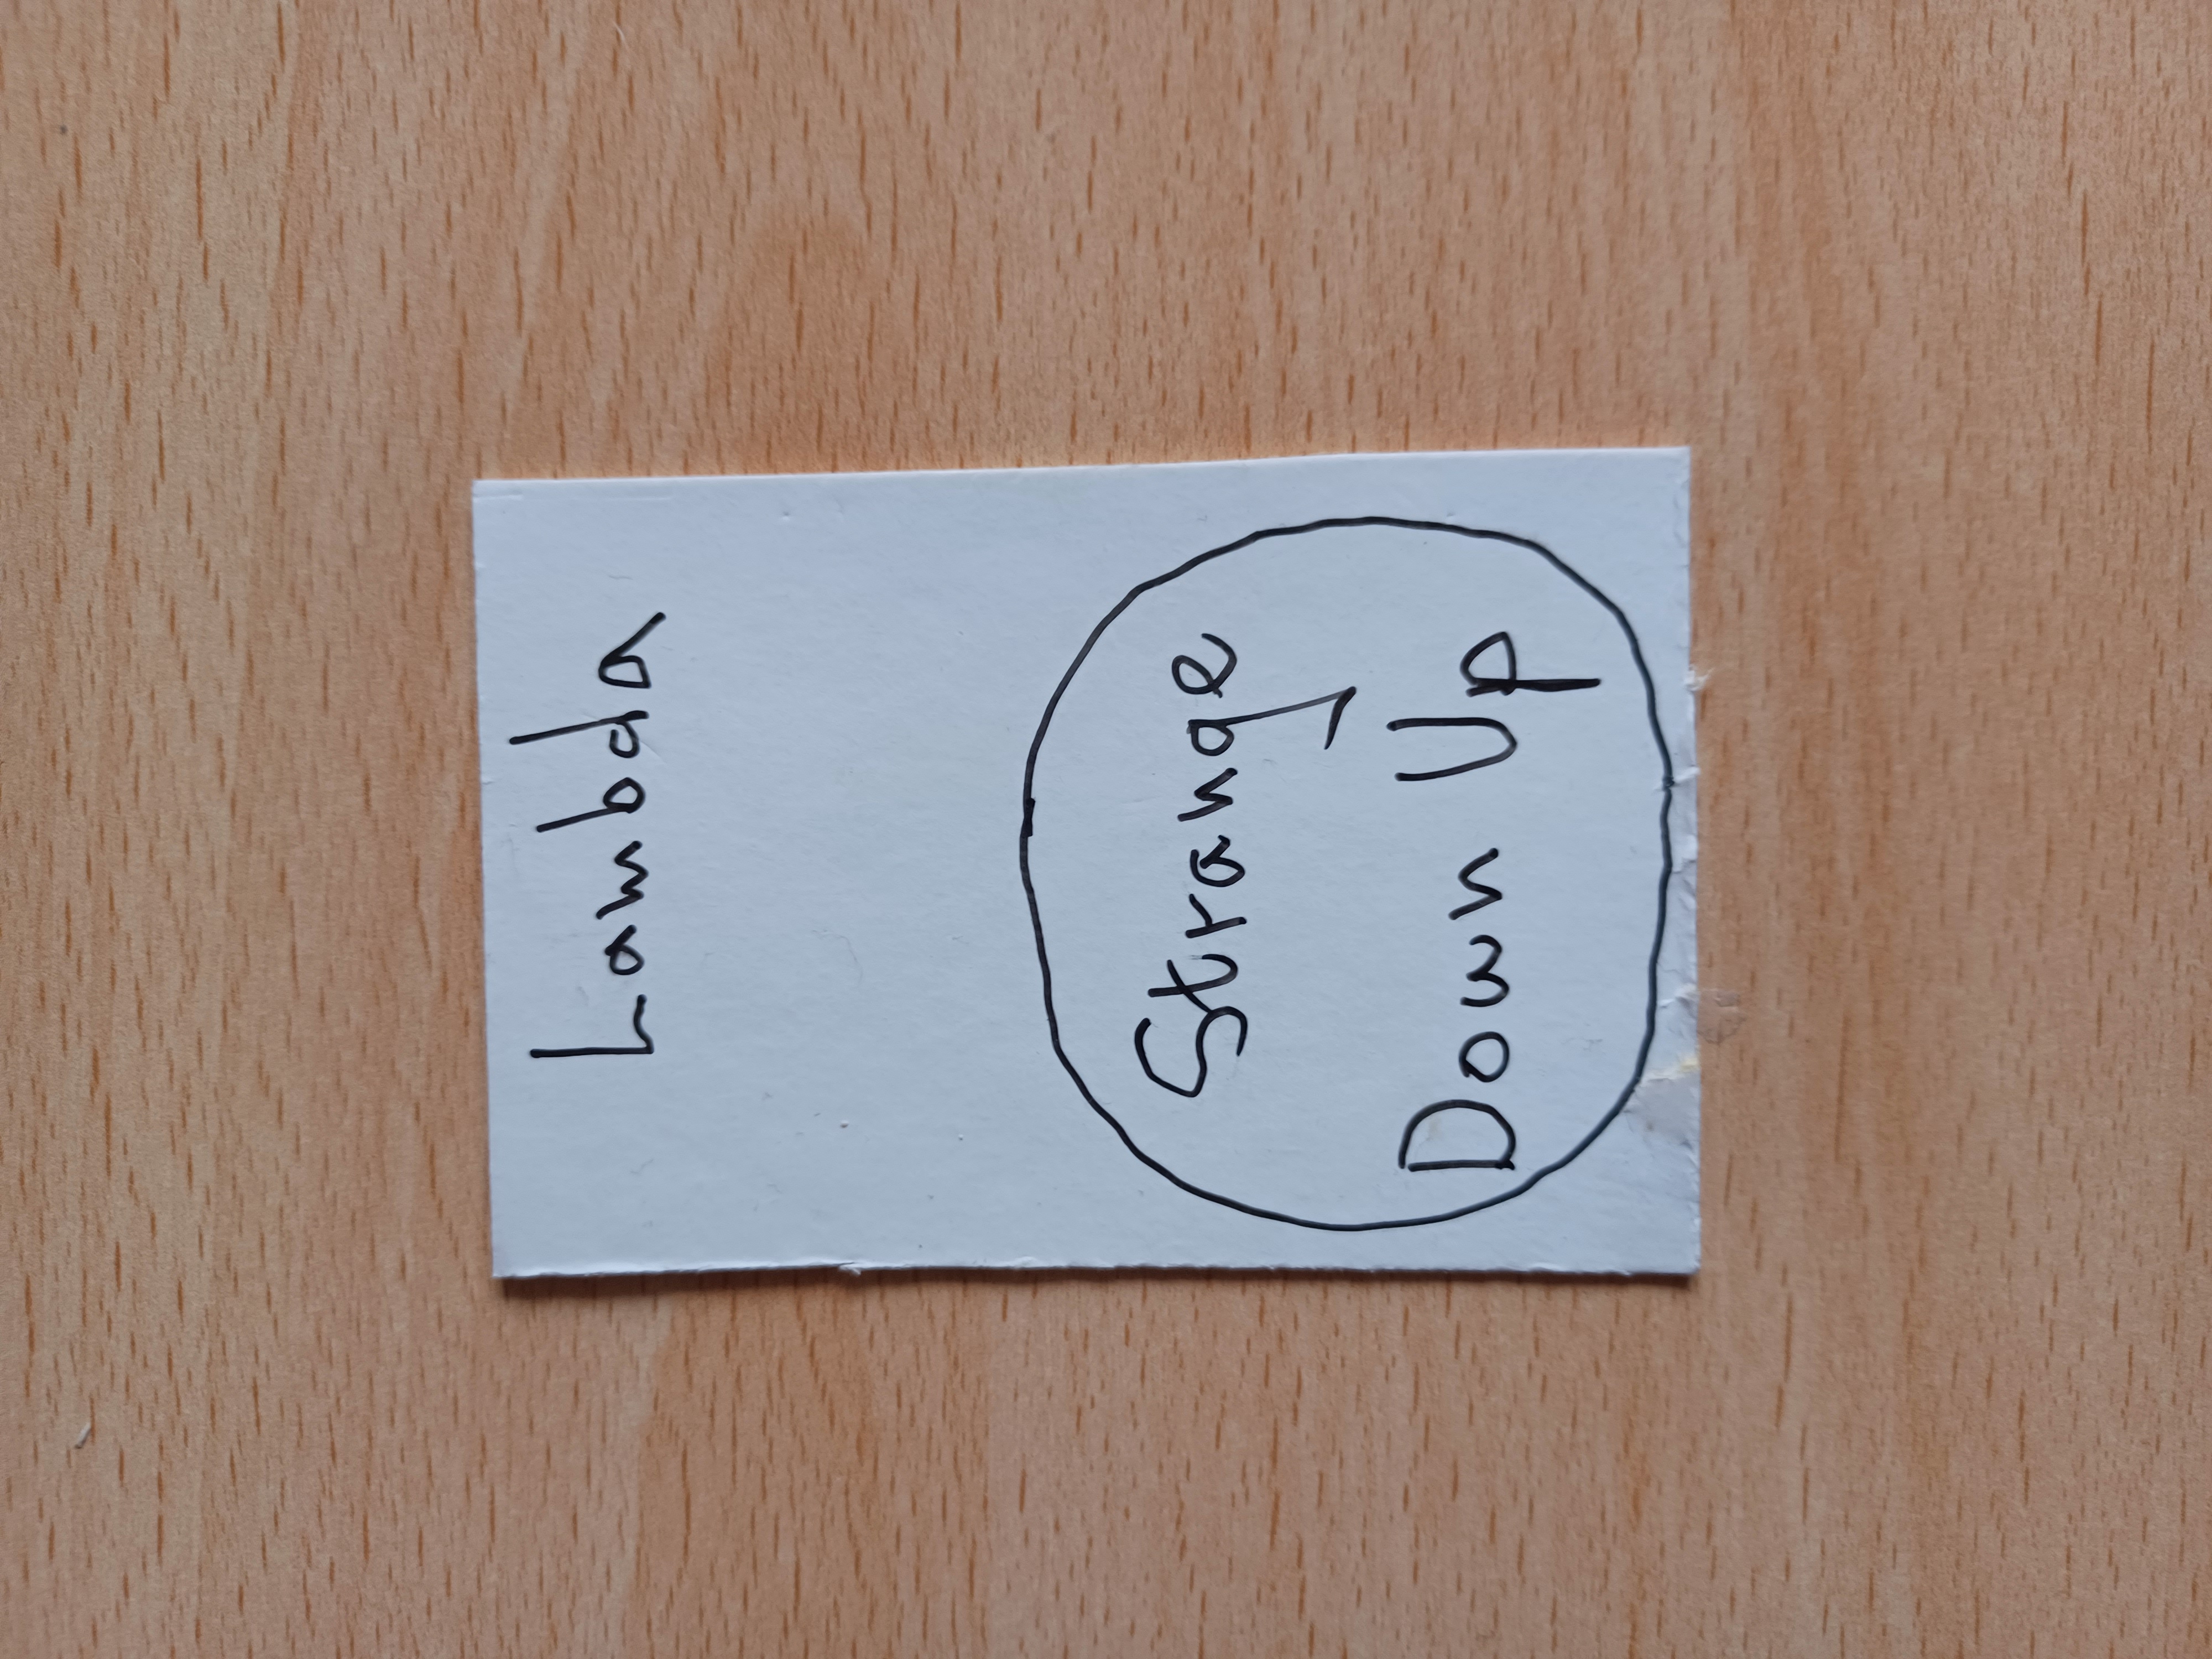 Lambda
Strange
Down Up